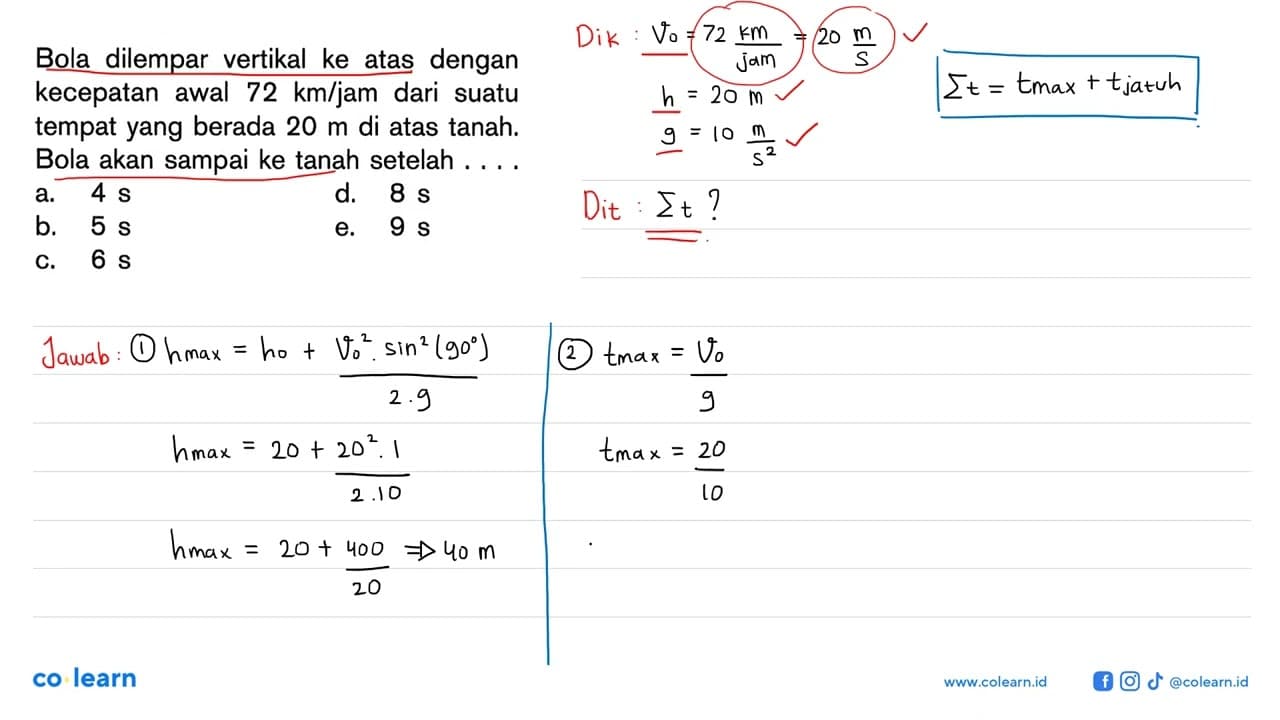 Bola dilempar vertikal ke atas dengan
kecepatan awal 72 km/jam dari suatu
tempat yang berada 20 m di atas tanah.
Bola akan sampai ke tanah setelah . . . .
a. 4 s d. 8 s
b. 5 s e. 9 s
c. 6 s
Dik : V₀ = 72 km/jam = 20 m/s ✓
h = 20 m ✓
g = 10 m/s² ✓
Dit : Σt ?
Σt = tmax + tjatuh
Jawab : ① hmax = h₀ + V₀² . sin² (90°) / 2 . g
hmax = 20 + 20² . 1 / 2 . 10
hmax = 20 + 400 / 20 ⇒ 40 m
② tmax = V₀ / g
tmax = 20 / 10
co learn
www.colearn.id
@colearn.id